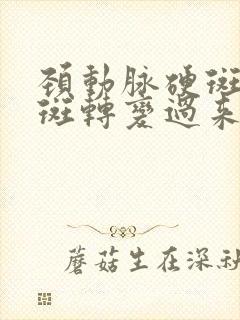 頚動脉硬斑
斑轉變過来
蘑菇生在深秋